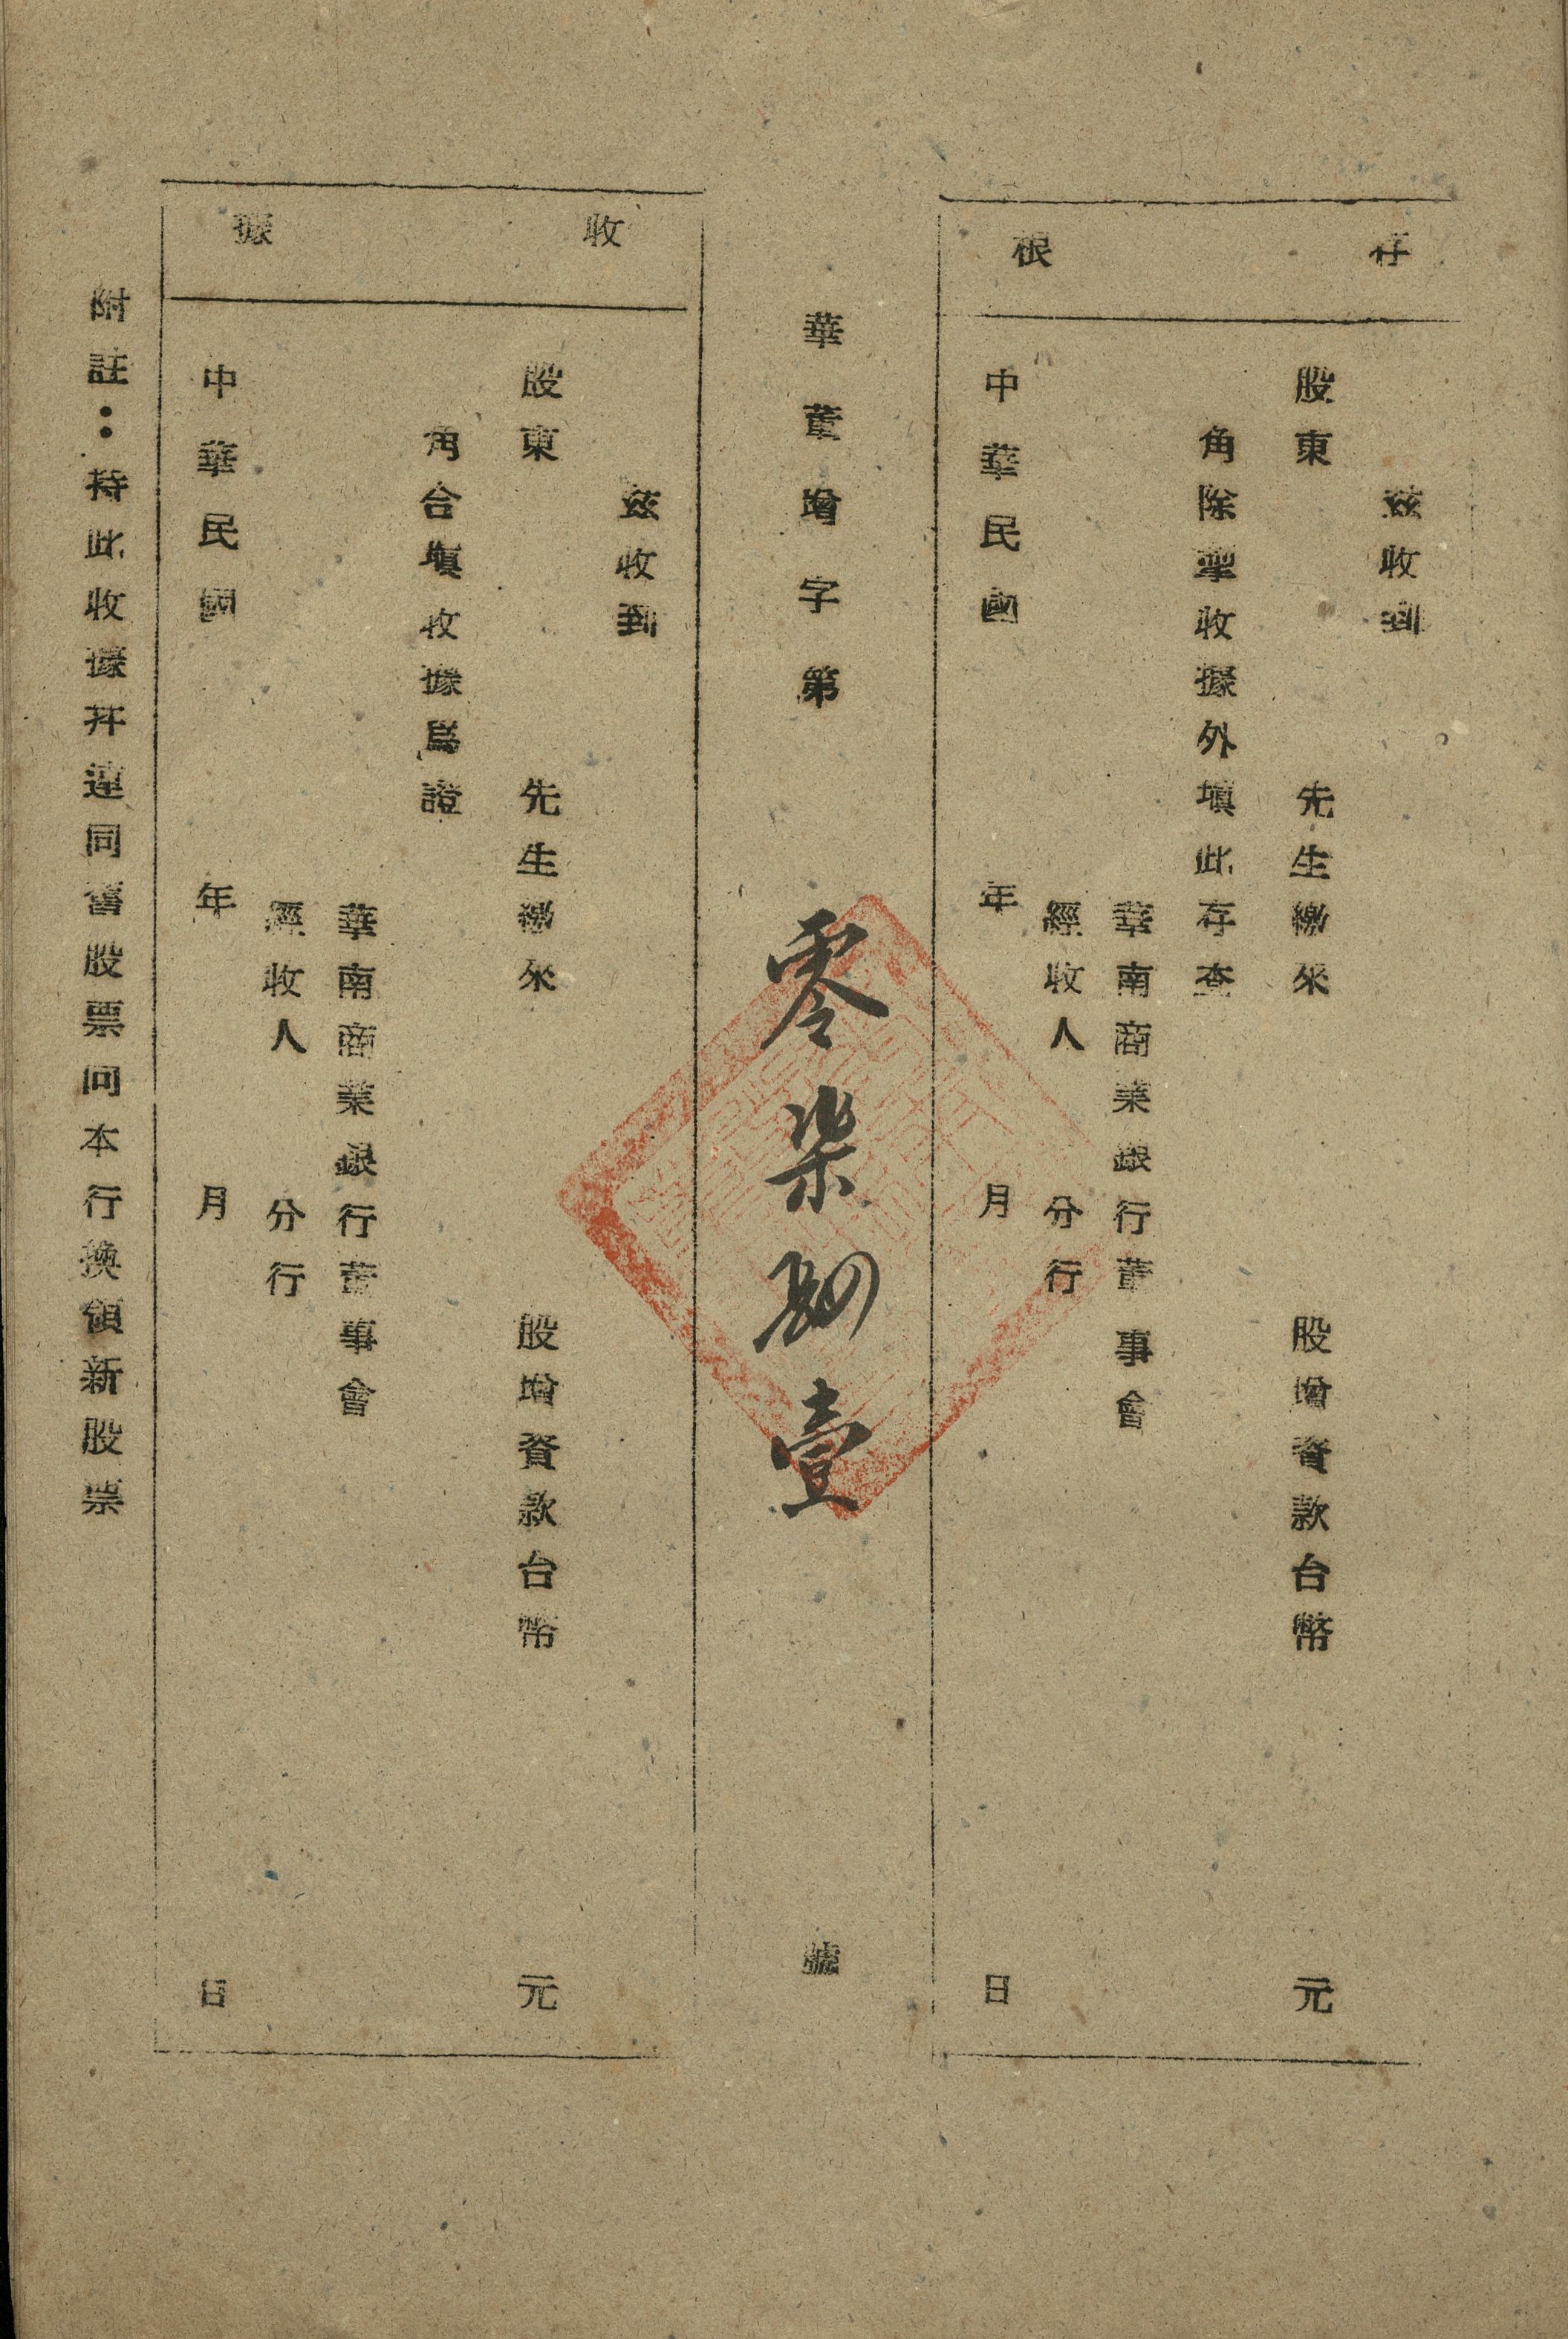 存根
茲收到
股東 先生繳來 股增資款台幣 元
角除掣收據外填此存查
華南商業銀行董事會
經收人 分行
中華民國 年 月 日
華董增字第 零柒 壹 號
收據
茲收到
股東 先生繳來 股增資款台幣 元
角合填收據爲證
華南商業銀行董事會
經收人 分行
中華民國 年 月 日
附註：持此收據幷連同舊股票向本行換領新股票